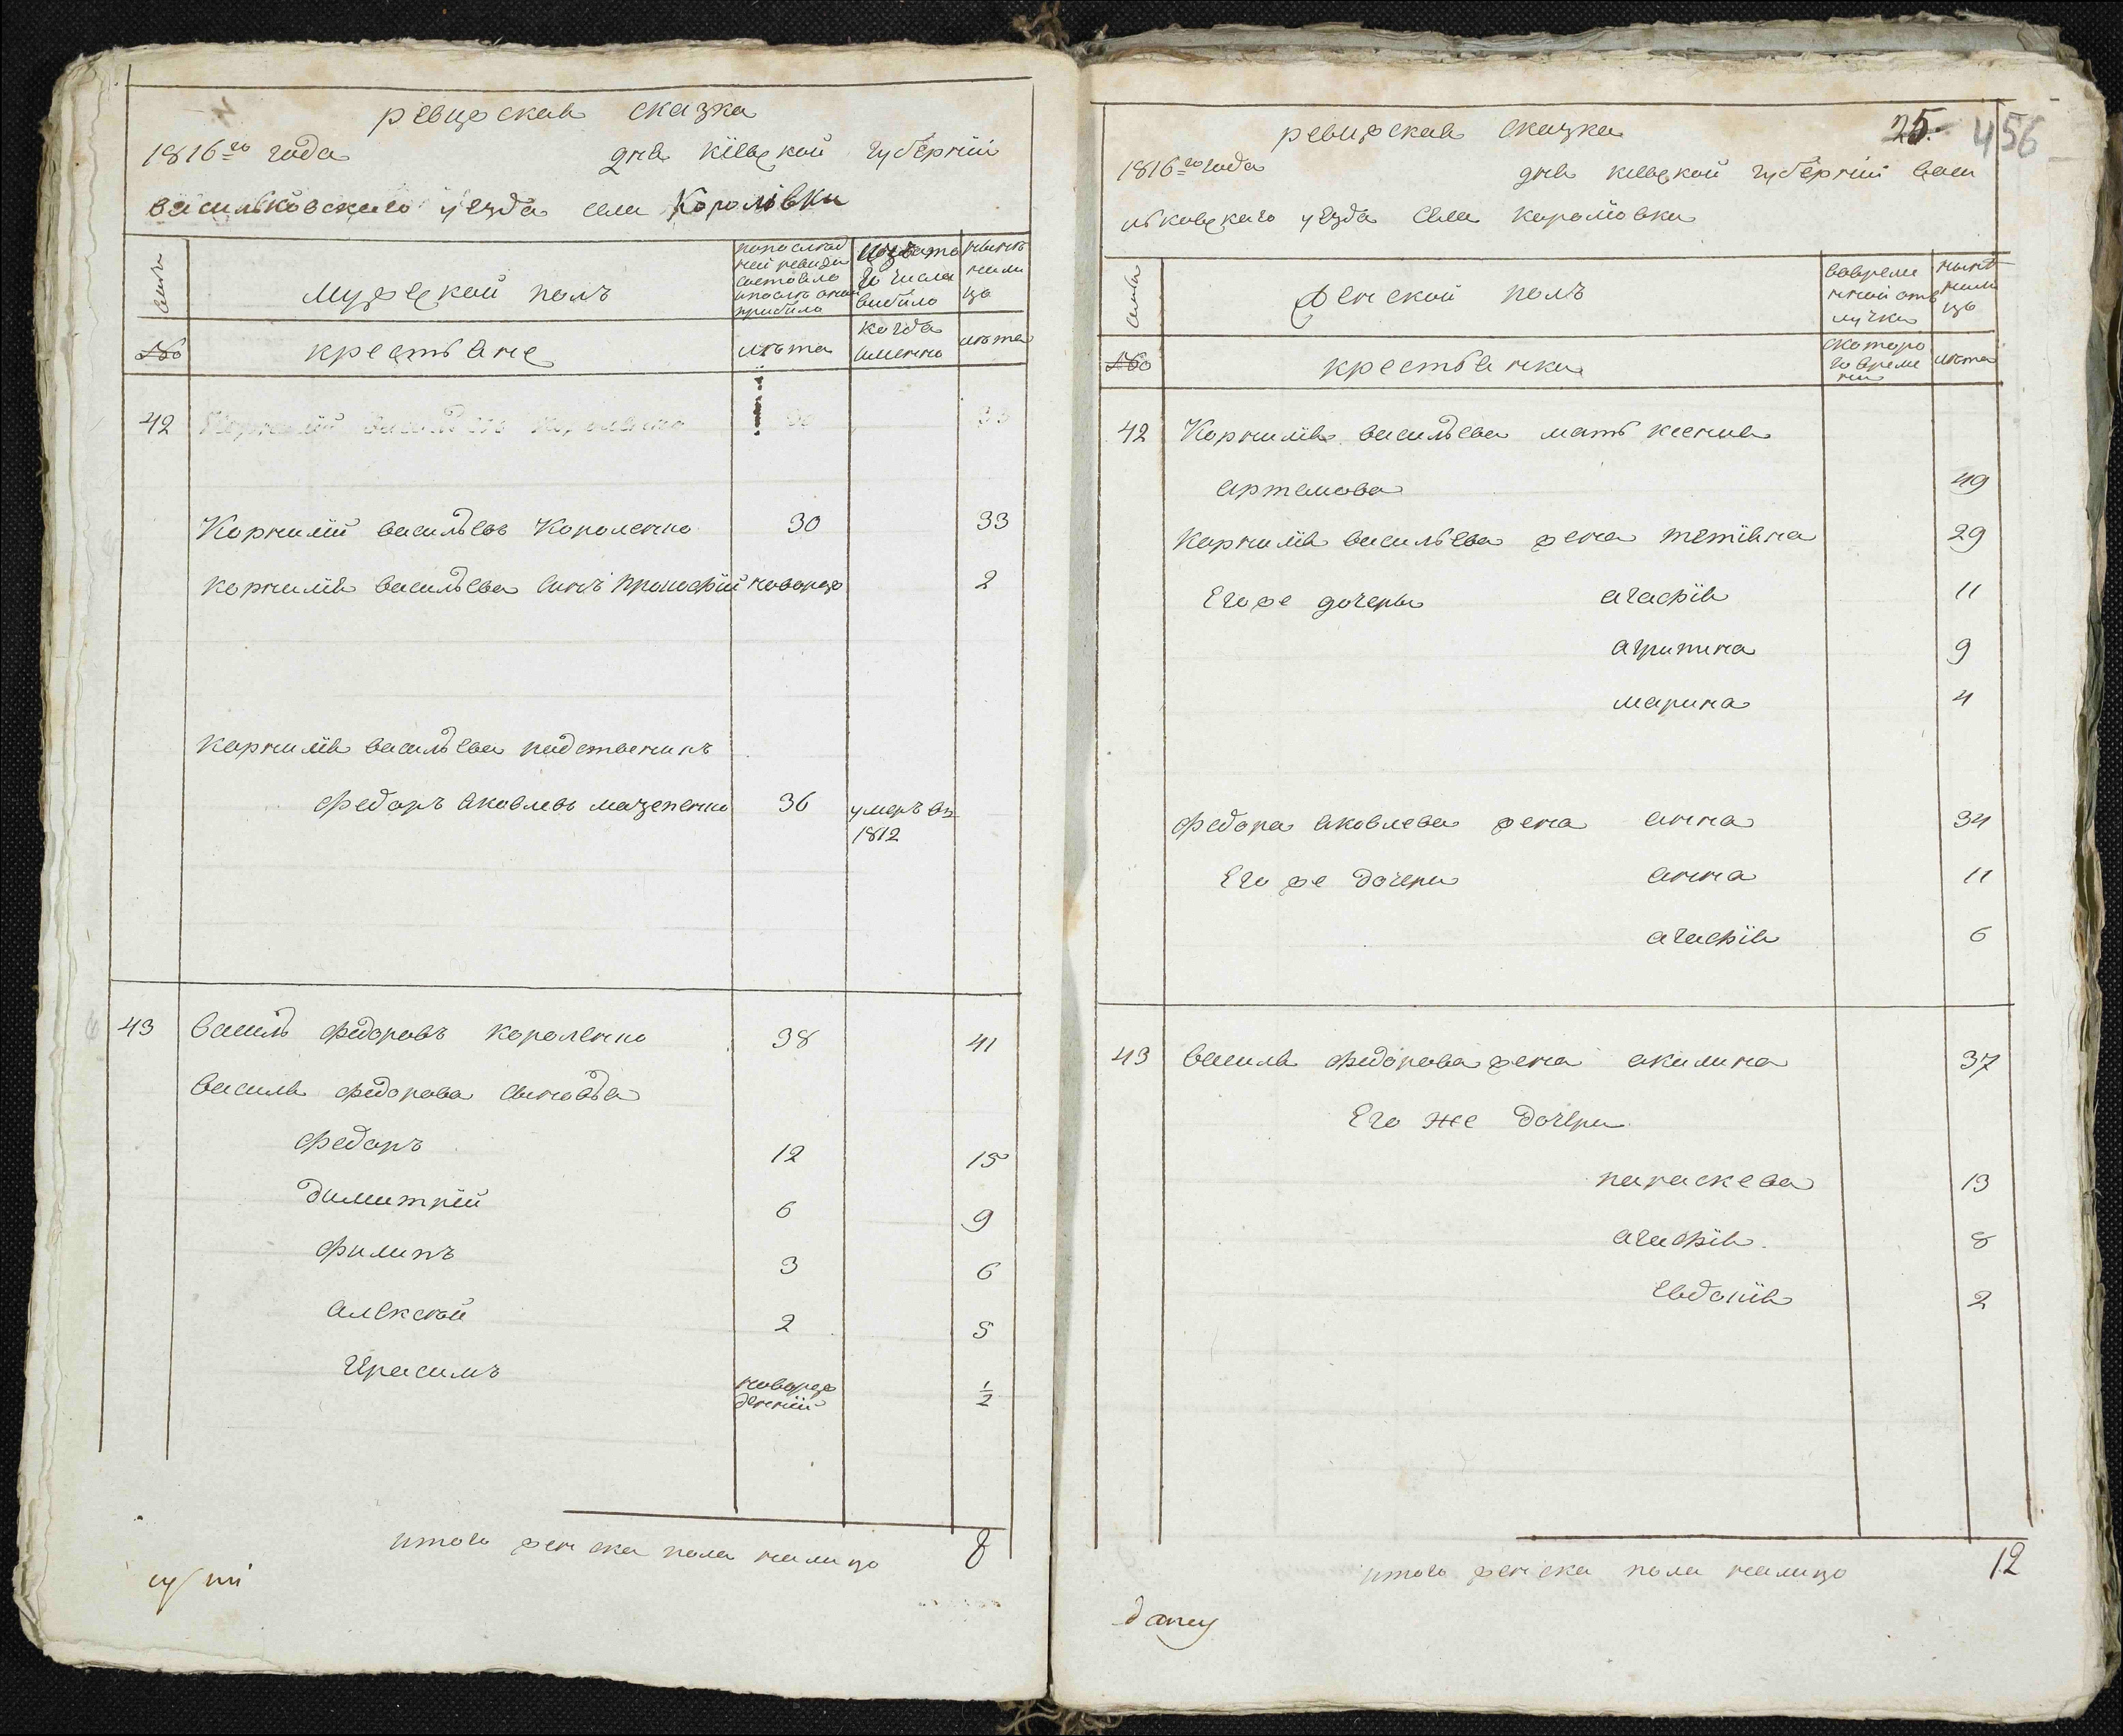 ревижская сказка
1816го года дня кіевской губерніи
васильковскаго уезда села Королівки
семьи
мужеской полъ
попослѣдней ревизіи состояло и послѣ оной прибыло
изътого числа выбыло
нынѣ налицо
№
крестьяне
лѣта
когда именно
лѣта
42
Корнилій васильевъ Короленко 30 33
корнилія васильева синъ Прокофій новорож 2
корнилія васильева
федоръ яковлевъ мазепенко 36 умеръ въ 1812
43 василь федоровъ короленко 38 41
василя федорова синовья
федоръ 12 15
димитрій 6 9
филипъ 3 6
алексѣй 2 5
Ирасимъ новорожденній ½
итого женска пола налицо 8
ревижская сказка
25. 456
1816го года дня кіевской губерніи васи
льковскаго уезда села королювки
семьи
женской полъ
вовременной отлучки
нынѣ налицо
№
крестьянки
скоторого времени
лѣта
42 Корнилія васильева мать ксенія
артемова 49
корнилія васильева жена тетіяна 29
Егоже дочеры агафія 11
агрипина 9
марина 4
федора яковлева жена анна 34
Его же дочери анна 11
агафія 6
43 василя федорова жена акилина 37
Его же дочери
параскева 13
агафія 8
евдокія 2
итого женска пола налицо 12